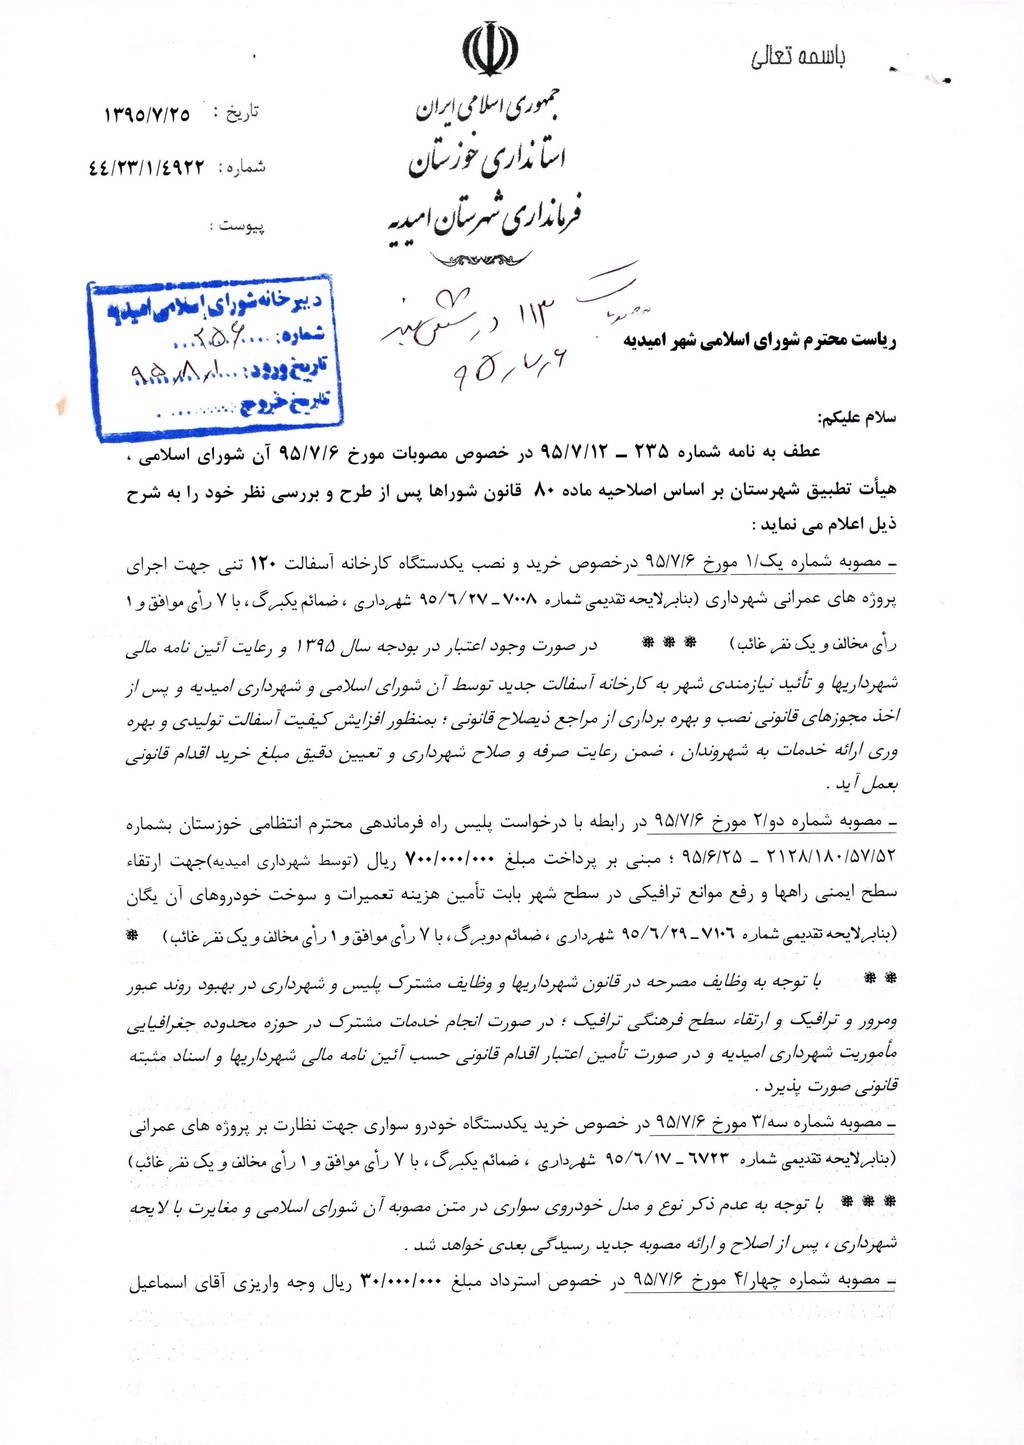 باسمه تعالی
جمهوری اسلامی ایران
استانداری خوزستان
فرمانداری شهرستان امیدیه
تاریخ : ۱۳۹۵/۷/۲۵
شماره : ۴۴/۲۳/۱/۴۹۲۲
پیوست :
دبیرخانه شورای اسلامی امیدیه
شماره: ۲۵۶
تاریخ ورود: ۹۵٫۸٫۱
تاریخ خروج
۱۱۳ در
ریاست محترم شورای اسلامی شهر امیدیه
سلام علیکم:
عطف به نامه شماره ۲۳۵ – ۹۵/۷/۱۲ در خصوص مصوبات مورخ ۹۵/۷/۶ آن شورای اسلامی ،
هیأت تطبیق شهرستان بر اساس اصلاحیه ماده ۸۰ قانون شوراها پس از طرح و بررسی نظر خود را به شرح
ذیل اعلام می نماید :
– مصوبه شماره یک/۱ مورخ ۹۵/۷/۶ درخصوص خرید و نصب یکدستگاه کارخانه آسفالت ۱۲۰ تنی جهت اجرای
پروژه های عمرانی شهرداری (بنابرلایحه تقدیمی شماره ۷۰۰۸ – ۹۵/۶/۲۷ شهرداری ، ضمائم یکبرگ، با ۷ رأی موافق و ۱
رأی مخالف و یک نفر غائب) ❋ ❋ ❋ در صورت وجود اعتبار در بودجه سال ۱۳۹۵ و رعایت آئین نامه مالی
شهرداریها و تأئید نیازمندی شهر به کارخانه آسفالت جدید توسط آن شورای اسلامی و شهرداری امیدیه و پس از
اخذ مجوزهای قانونی نصب و بهره برداری از مراجع ذیصلاح قانونی ؛ بمنظور افزایش کیفیت آسفالت تولیدی و بهره
وری ارائه خدمات به شهروندان ، ضمن رعایت صرفه و صلاح شهرداری و تعیین دقیق مبلغ خرید اقدام قانونی
بعمل آید .
– مصوبه شماره دو/۲ مورخ ۹۵/۷/۶ در رابطه با درخواست پلیس راه فرماندهی محترم انتظامی خوزستان بشماره
۲۱۲۸/۱۸۰/۵۷/۵۲ – ۹۵/۶/۲۵ ؛ مبنی بر پرداخت مبلغ ۷۰۰/۰۰۰/۰۰۰ ریال (توسط شهرداری امیدیه)جهت ارتقاء
سطح ایمنی راهها و رفع موانع ترافیکی در سطح شهر بابت تأمین هزینه تعمیرات و سوخت خودروهای آن یگان
(بنابرلایحه تقدیمی شماره ۷۱۰۶ – ۹۵/۶/۲۹ شهرداری ، ضمائم دوبرگ، با ۷ رأی موافق و ۱ رأی مخالف و یک نفر غائب) ❋
❋ ❋ با توجه به وظایف مصرحه در قانون شهرداریها و وظایف مشترک پلیس و شهرداری در بهبود روند عبور
ومرور و ترافیک و ارتقاء سطح فرهنگی ترافیک ؛ در صورت انجام خدمات مشترک در حوزه محدوده جغرافیایی
مأموریت شهرداری امیدیه و در صورت تأمین اعتبار اقدام قانونی حسب آئین نامه مالی شهرداریها و اسناد مثبته
قانونی صورت پذیرد .
– مصوبه شماره سه/۳ مورخ ۹۵/۷/۶ در خصوص خرید یکدستگاه خودرو سواری جهت نظارت بر پروژه های عمرانی
(بنابرلایحه تقدیمی شماره ۶۷۲۳ – ۹۵/۶/۱۷ شهرداری ، ضمائم یکبرگ، با ۷ رأی موافق و ۱ رأی مخالف و یک نفر غائب)
❋ ❋ ❋ با توجه به عدم ذکر نوع و مدل خودروی سواری در متن مصوبه آن شورای اسلامی و مغایرت با لایحه
شهرداری ، پس از اصلاح و ارائه مصوبه جدید رسیدگی بعدی خواهد شد .
– مصوبه شماره چهار/۴ مورخ ۹۵/۷/۶ در خصوص استرداد مبلغ ۳۰/۰۰۰/۰۰۰ ریال وجه واریزی آقای اسماعیل